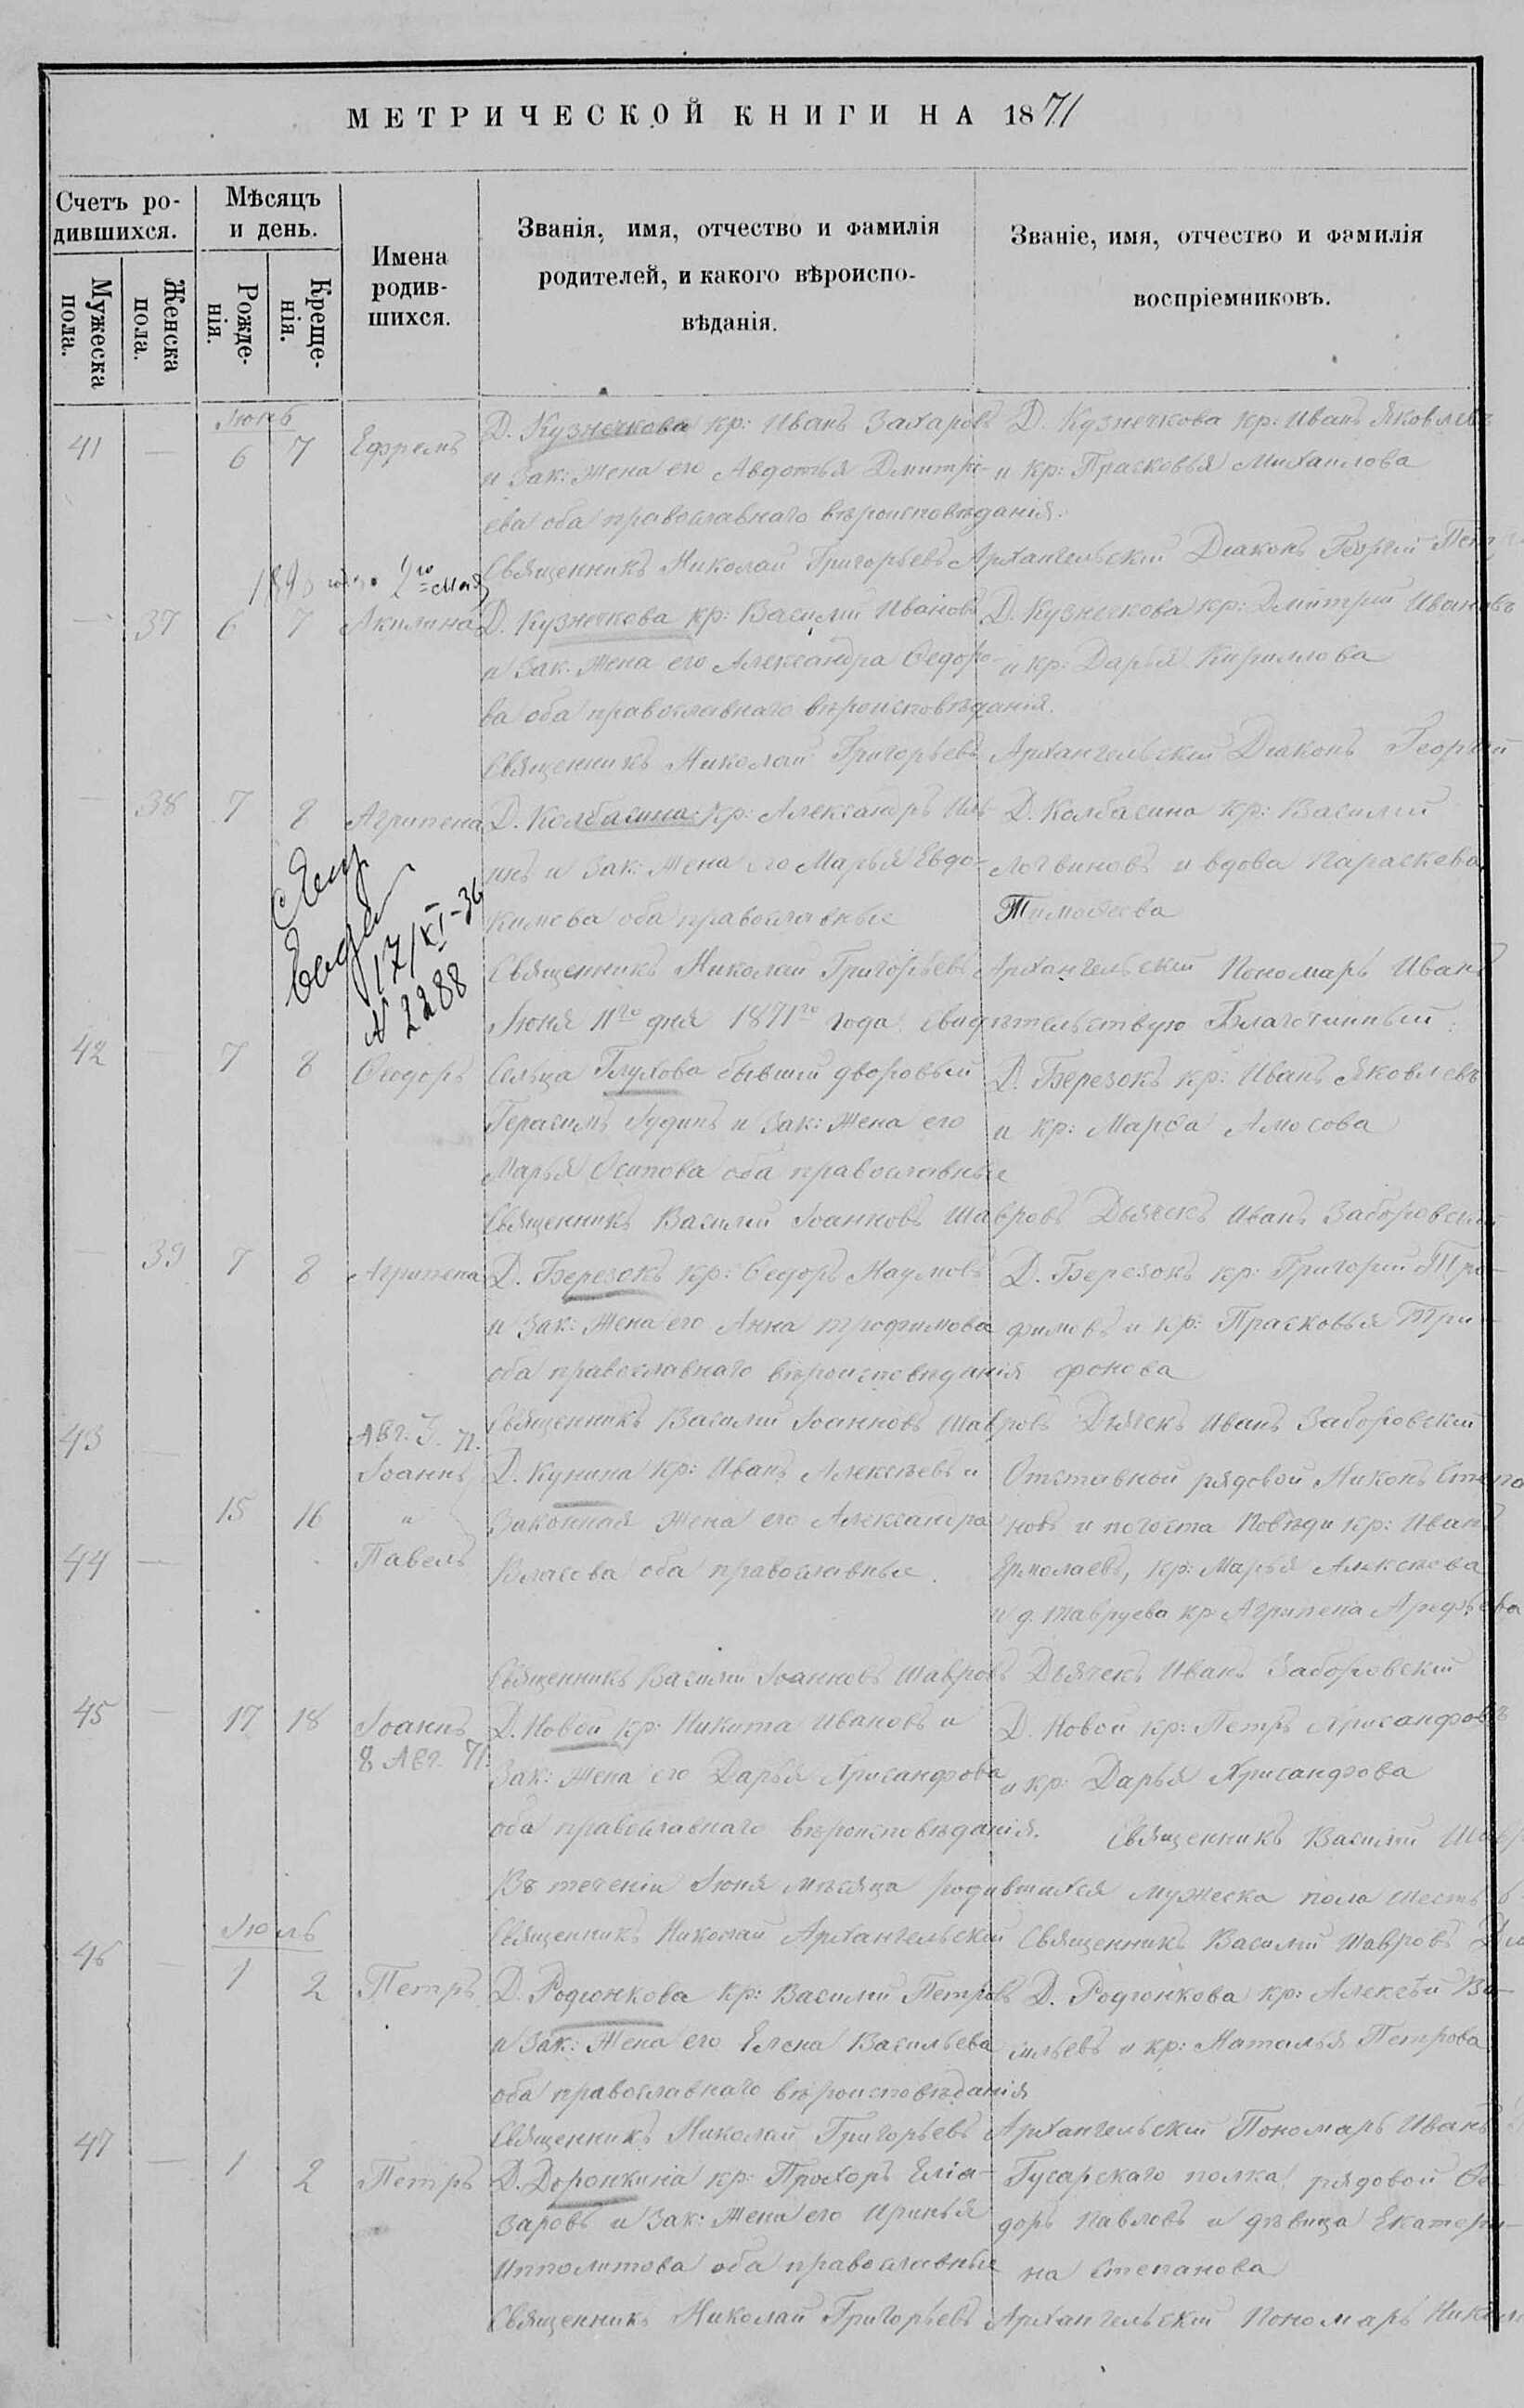 МЕТРИЧЕСКОЙ КНИГИ НА 1871
Счетъ ро-
дившихся.
Мужеска
пола.
Женска
пола.
Мѣсяцъ
и день.
Рожде-
нія.
Креще-
нія.
Имена
родив-
шихся.
Званія, имя, отчество и фамилія
родителей, и какого вѣроиспо-
вѣданія.
Званіе, имя, отчество и фамилія
воспріемниковъ.
Іюнь
41 — 6 7 Ефремъ Д. Кузнечкова кр: Иванъ Захаровъ Д. Кузнечкова кр: Иванъ Яковлевъ
и Зак: жена его Авдотья Дмитрі- и кр: Прасковья Михаилова
ева оба православнаго вѣроисповѣданія.
Священникъ Николай Григорьевъ Архангельскій Діаконъ Георгій
2го Мая
— 37 6 7 Акилина Д. Кузнечкова кр: Василій Ивановъ Д. Кузнечкова кр: Дмитрій Ивановъ
и Зак: жена его Александра Ѳедоро- и кр: Дарья Кириллова
ва оба православнаго вѣроисповѣданія.
Священникъ Николай Григорьевъ Архангельскій Діаконъ Георгій
— 38 7 8 Агрипена Д. Колбасина кр: Александръ Иль- Д. Колбасина кр: Василій
инъ и Зак: жена его Марья Евдо- Логвиновъ и вдова Параскева
кимова оба православные Тимоѳеева
17/XI-36
N 2288
Священникъ Николай Григорьевъ Архангельскій Пономарь Иванъ
Іюня 11го дня 1871го года свидѣтельствую Благочинный
42 — 7 8 Ѳеодоръ Сельца Глухова бывшій дворовый Д. Березокъ кр: Иванъ Яковлевъ
Герасимъ Іудинъ и Зак: жена его и кр: Марѳа Амосова
Марья Осипова оба православные
Священникъ Василій Іоанновъ Шавровъ Дьячекъ Иванъ Заборовскій
— 39 7 8 Агрипена Д. Березокъ кр: Ѳедоръ Наумовъ Д. Березокъ кр: Григорій Тро-
и Зак: жена его Анна Трофимова фимовъ и кр: Прасковья Три-
оба православнаго вѣроисповѣданія фонова
Священникъ Василій Іоанновъ Шавровъ Дьячекъ Иванъ Заборовскій
43 — Іоаннъ Д. Кунина кр: Иванъ Алексѣевъ и Отставной рядовой Никонъ Степа
15 16 и законная жена его Александра новъ и погоста Повѣди кр: Иванъ
44 — Павелъ Власова оба православные. Ермолаевъ, кр: Марья Алексѣева
и д. кр: Агрипена
Священникъ Василій Іоанновъ Шавровъ Дьячекъ Иванъ Заборовскій
45 — 17 18 Іоаннъ Д. Новой кр: Никита Ивановъ и Д. Новой кр: Петръ Хрисанфовъ
8 Авг. 71. Зак: жена его Дарья Хрисанфова и кр: Дарья Хрисанфова
оба православнаго вѣроисповѣданія. Священникъ Василій
Въ теченіи Іюня мѣсяца родившихся мужеска пола шесть
Священникъ Николай Архангельскій Священникъ Василій Шавровъ
Іюль
46 — 1 2 Петръ Д. Родіонкова кр: Василій Петровъ Д. Родіонкова кр: Алексѣй Ва-
и Зак: жена его Елена Васильева сильевъ и кр: Наталья Петрова
оба православнаго вѣроисповѣданія
Священникъ Николай Григорьевъ Архангельскій Пономарь Иванъ
47 — 1 2 Петръ Д. Доронкина кр: Прохоръ Еліа- Гусарскаго полка рядовой Ѳе-
заровъ и Зак: жена его Иринья доръ Павловъ и дѣвица Екатери-
Ипполитова оба православные на Степанова
Священникъ Николай Григорьевъ Архангельскій Пономарь